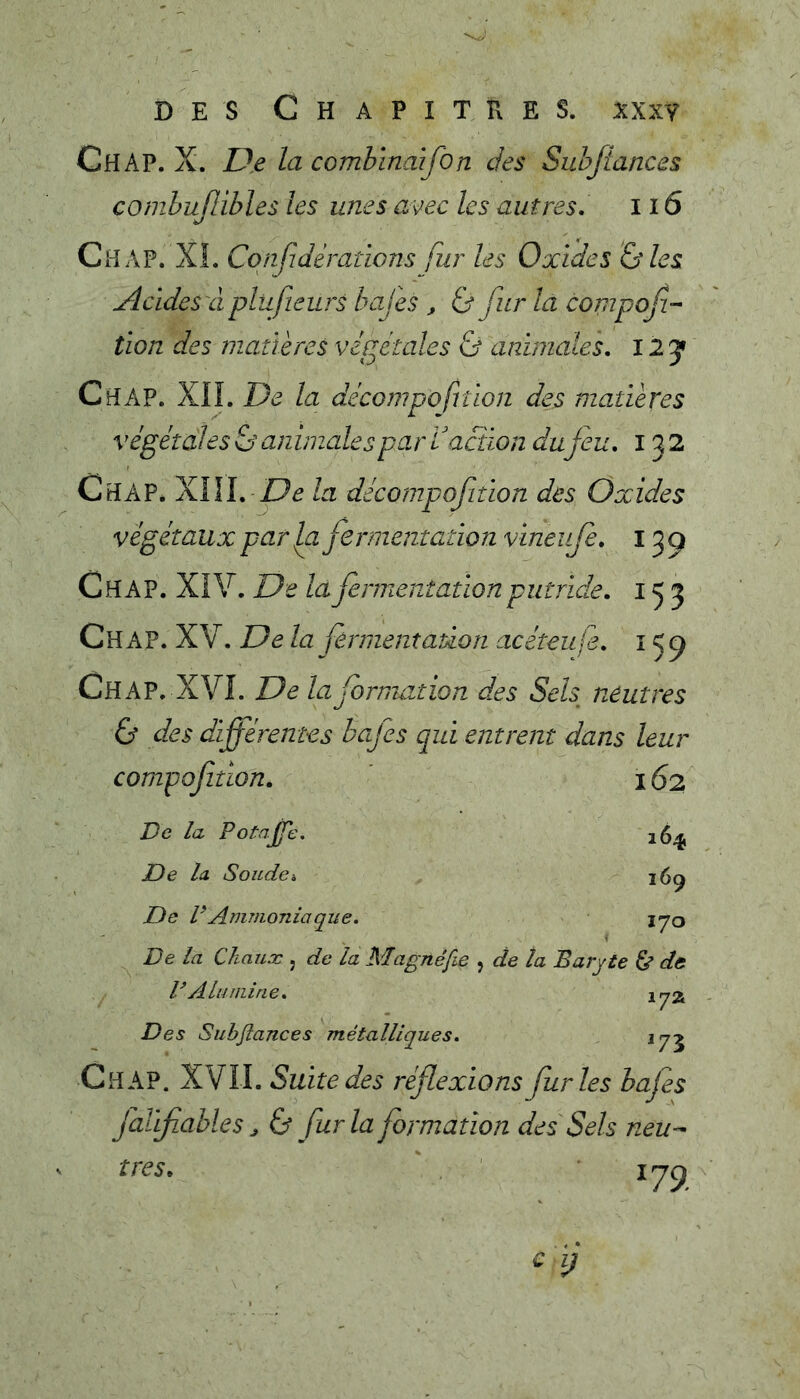 DES CHAPITRES. xxxv
CHAP. X. De la combinaiſon des Subſtances
combuſtibles les unes avec les autres. 116
CHAP. XI. Conſidérations ſur les Oxides & les
Acides à pluſieurs baſes, & ſur la compoſi-
tion des matières végétales & animales. 123
CHAP. XII. De la décompoſition des matières
végétales & animales par l'action du feu. 132
CHAP. XIII. De la décompoſition des Oxides
végétaux par la fermentation vineuſe. 139
CHAP. XIV. De la fermentation putride. 153
CHAP. XV. De la fermentation acéteuſe. 159
CHAP. XVI. De la formation des Sels neutres
& des différentes baſes qui entrent dans leur
compoſition. 162
De la Potaſſe. 164
De la Soude. 169
De l'Ammoniaque. 170
De la Chaux, de la Magnéſie, de la Baryte & de
l'Alumine. 172
Des Subſtances métalliques. 173
CHAP. XVII. Suite des réflexions ſur les baſes
ſalifiables, & ſur la formation des Sels neu-
tres. 179.
c ij